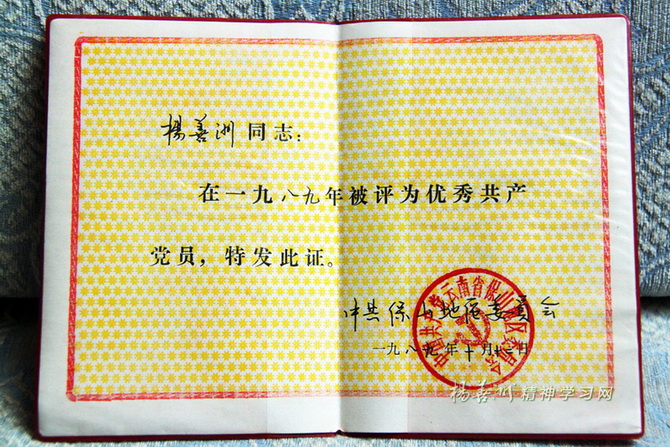 楊善洲同志：
在一九八九年被评为优秀共产
党员，特发此证。
中国共产党云南省保山地区委员会
中共保山地区委员会
一九八九年十月十二日
楊善洲精神学习网